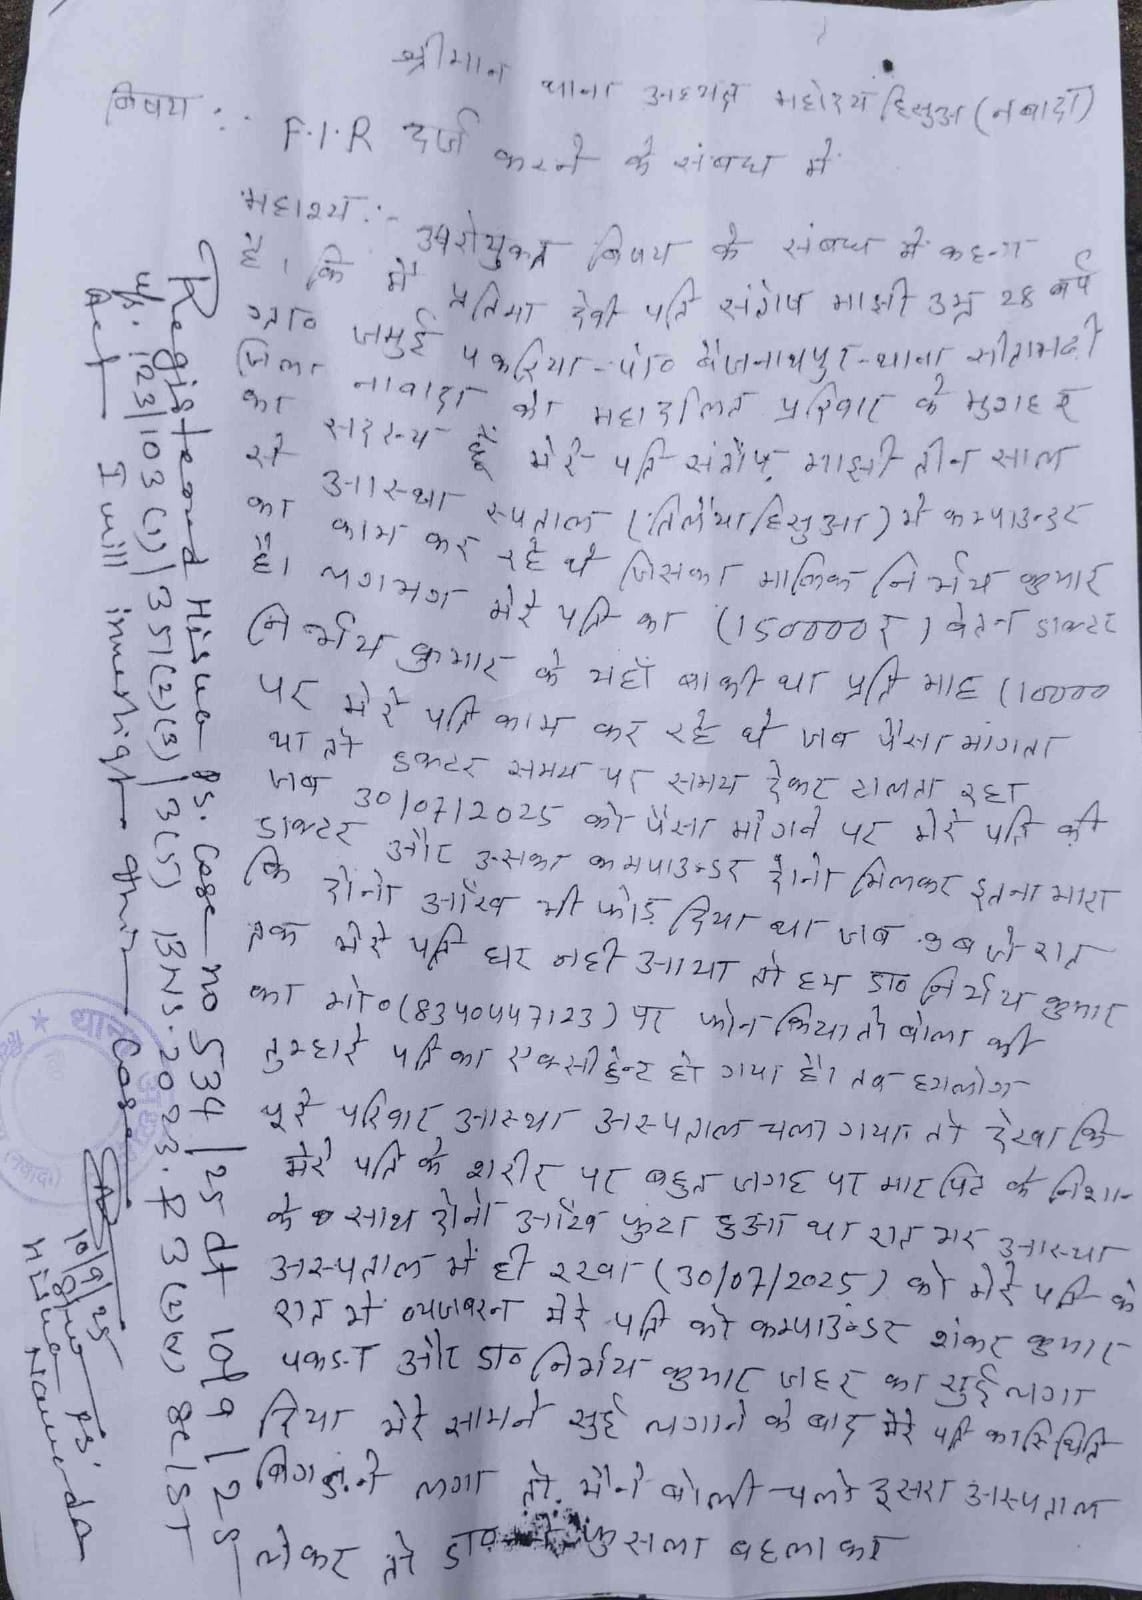 श्रीमान थाना अध्यक्ष महोदय हिसुआ (नवादा)
विषय :- F.I.R दर्ज करने के संबंध में
महाशय :- उपरोयुक्त विषय के संबंध में कहना
है। कि मैं प्रतिमा देवी पति संतोष माझी उम्र 28 वर्ष
ग्रा० जमुई पकरिया - पो० बैजनाथपुर - थाना सीतामढी
जिला नावादा को महादलित परिवार के मुशहर
का सदस्य हूँ मेरे पति संतोष माझी तीन साल
से आस्था स्पताल (तिलैया हिसुआ) में कम्पाउन्डर
का काम कर रहे थे जिसका मालिक निर्भय कुमार
है। लगभग मेरे पति का (150000 रु) वेतन डाक्टर
निर्भय कुमार के यहाँ बाकी था प्रति माह (10000
पर मेरे पति काम कर रहे थे जब पैसा मांगता
था तो डाक्टर समय पर समय देकर टालता रहा
जब 30/07/2025 को पैसा माँगने पर मेरे पति की
डाक्टर और उसका कमपाउन्डर दोनो मिलकर इतना मारा
कि दोनो आँख भी फोड़ दिया था जब 9 बजे रात
तक मेरे पति घर नही आया तो हम डा० निर्भय कुमार
का मो० (8340447123) पर फोन किया तो बोला की
तुम्हारे पति का एक्सीडेन्ट हो गया है। तब हमलोग
पूरे परिवार आस्था अस्पताल चला गया। तो देखा कि
मेरे पति के शरीर पर बहुत जगह पर मारपिट के निशा-
के साथ दोनो आँख फुटा हुआ था रात भर आस्था
अस्पताल में ही रखा (30/07/2025) को मेरे पति के
रात में मेरे पति को कम्पाउन्डर शंकर कुमार
पकड़ा और डा० निर्भय कुमार जहर का सुई लगा
दिया मेरे सामने सुई लगाने के बाद मेरे पति का स्थिति
बिगड़ने लगा तो मैंने बोली चलो दुसरा अस्पताल
लेकर तो डा० फुसला बहला कर
Registered Hisua P.S. Case no 534/25 dt 10/9/25
u/s. 123/103(1)/351(2)(3)/3(5) BNS. 2023. & 3(2)(v) SC/ST
Act I will
Case
10/9/25
P.S.
Hisua Nawada
★ थाना
(नवादा)